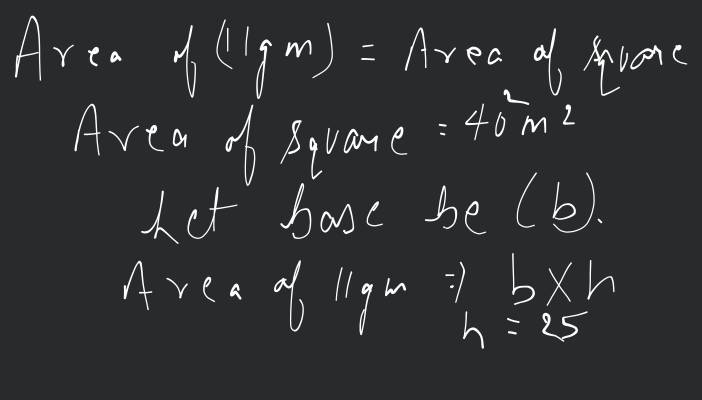 Area of (||gm) = Area of square
Area of square = 40² m²
Let base be (b).
Area of ||gm => b×h
h = 25